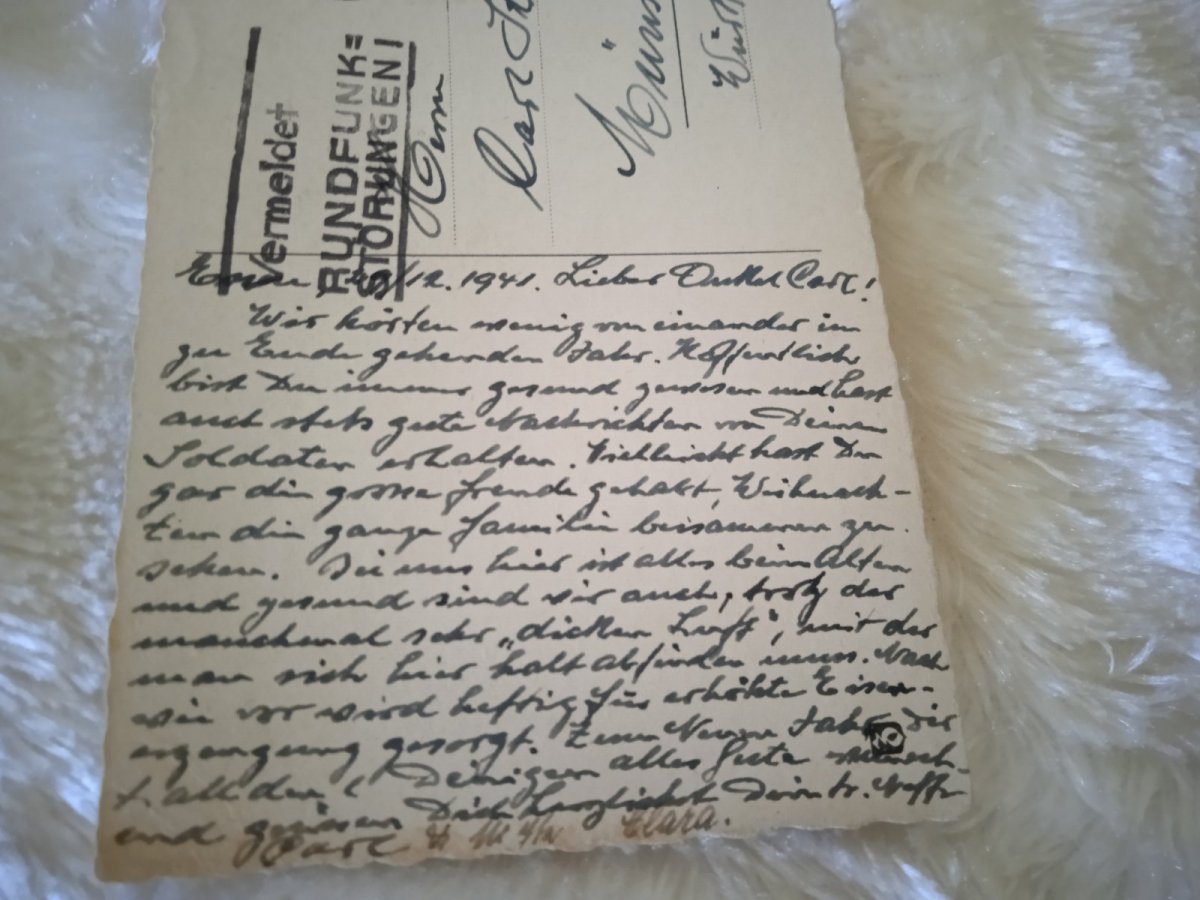 Vermeldet
RUNDFUNK=
STÖRUNGEN!
Herrn
Carl
Müns
Würt
Essen /12. 1941. Lieber Onkel Carl!
Wir hörten wenig von einander im
zu Ende gehenden Jahr. Hoffentlich
bist Du immer gesund gewesen und hast
auch stets gute Nachrichten von Deinen
Soldaten erhalten. Vielleicht hast Du
gar die grosse Freude gehabt, Weihnach-
ten die ganze Familie beisammen zu
sehen. Bei uns hier ist alles beim Alten
und gesund sind wir auch, trotz der
manchmal sehr „dicken Luft", mit der
man sich hier halt abfinden muss. Nach
wie vor wird heftig für erhöhte Eisen-
erzeugung gesorgt. Zum Neuen Jahr Dir
u. all den Deinigen alles Gute wünsch-
end grüssen Dich herzlichst Dein tr. Neffe
Carl Clara.